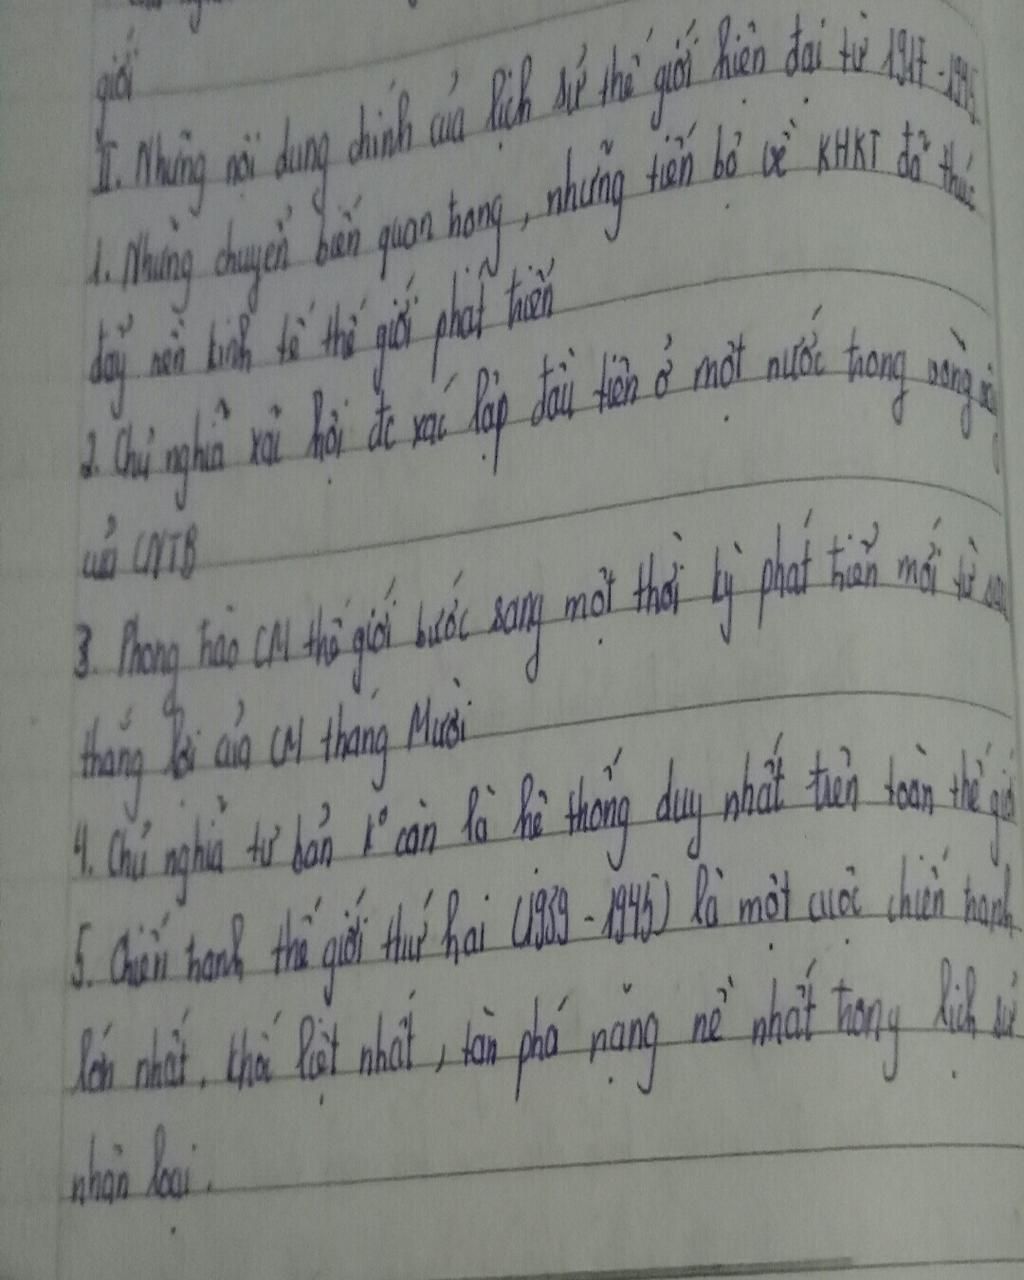 giới
II. Những nội dung chính của lịch sử thế giới hiện đại từ 1917-1945
1. Những chuyển biến quan trọng, những tiến bộ về KHKT đã thúc
đẩy nền kinh tế thế giới phát triển
2. Chủ nghĩa xã hội đc xác lập đầu tiên ở một nước trong vòng vây
của CNTB
3. Phong trào CM thế giới bước sang một thời kỳ phát triển mới từ sau
thắng lợi của CM tháng Mười
4. Chủ nghĩa tư bản k° còn là hệ thống duy nhất trên toàn thế giới
5. Chiến tranh thế giới thứ hai (1939-1945) là một cuộc chiến tranh
lớn nhất, khốc liệt nhất, tàn phá nặng nề nhất trong lịch sử
nhân loại.